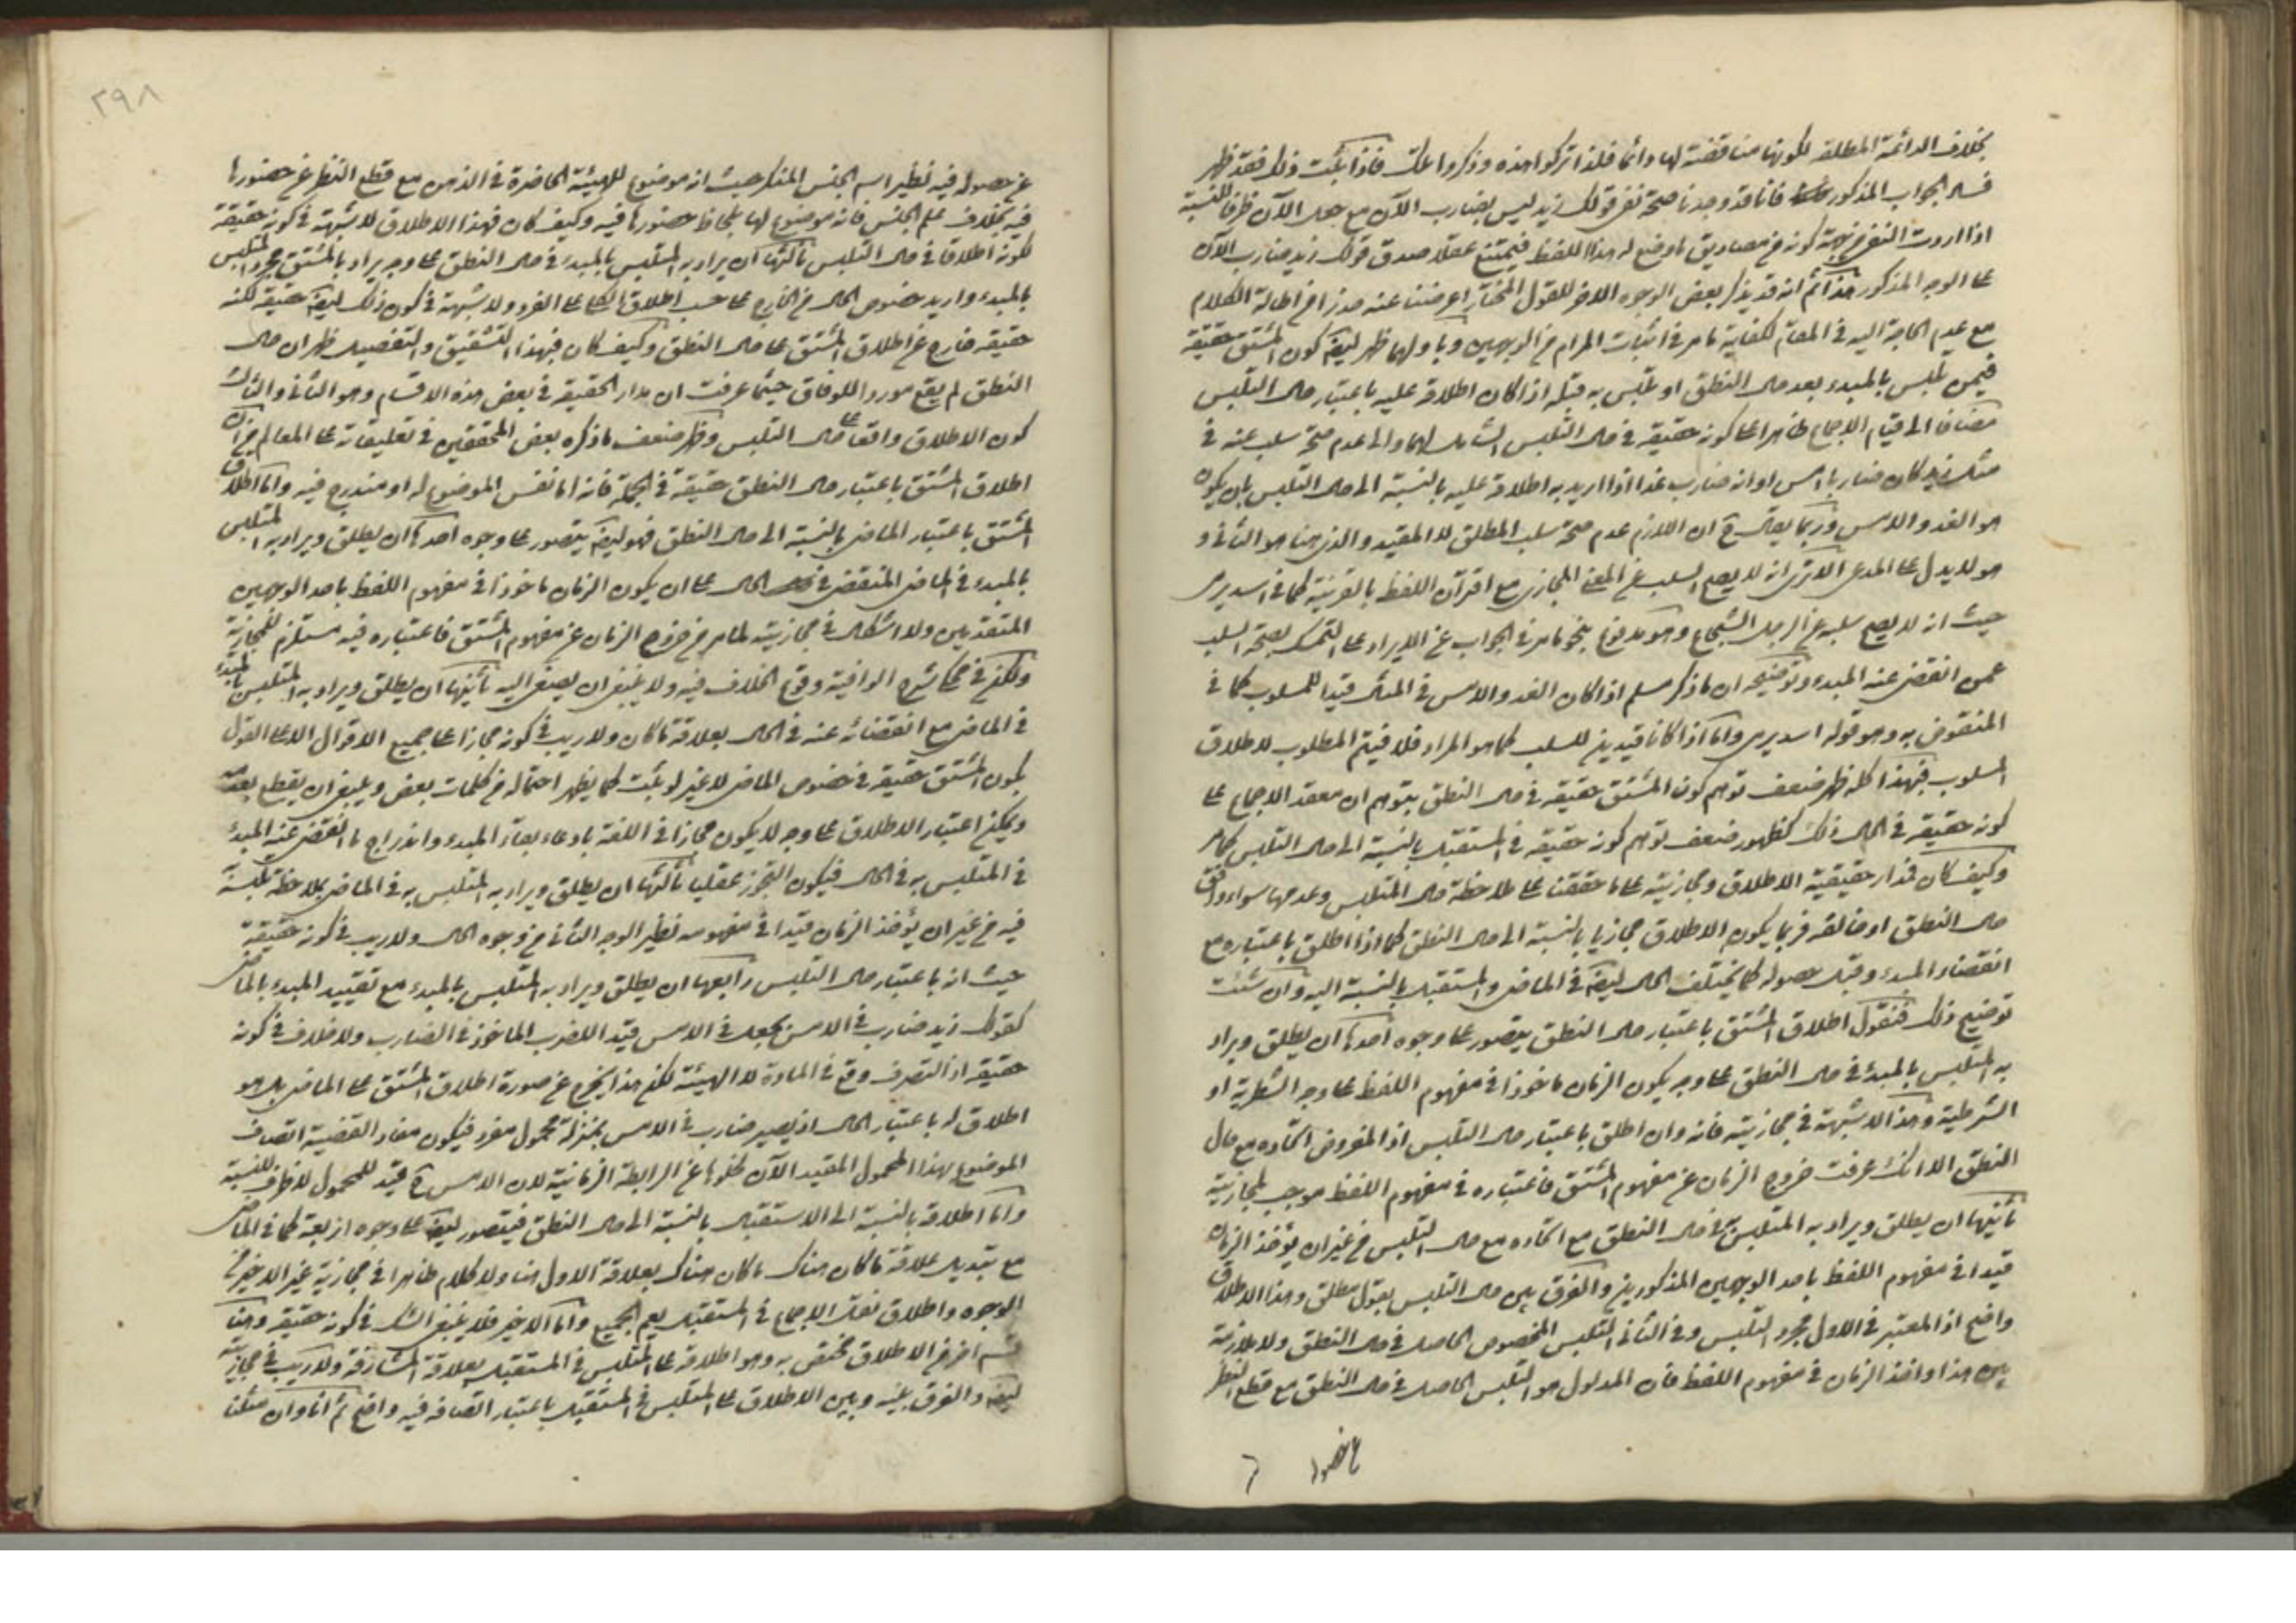 بخلاف الدائمة المطلقة لكونها مناقضة لها دائما فلذا تركوا هذه وذكروا تلك فاذا ثبت ذلك فقد ظهر
فساد الجواب المذكور فانا قد وجدنا صحة نفى قولك زيد ليس بضارب الآن مع جعل الآن ظرفا للنسبة
اذا اردت النفى من جهة كونه من مصاديق ما وضع له هذا اللفظ فيمتنع عقلا صدق قولك زيد ضارب الآن
على الوجه المذكور هذا ثم انه قد يذكر بعض الوجوه الاخر للقول المختار اعرضنا عنه حذرا من اطالة الكلام
مع عدم الحاجة اليه فى المقام لكفاية ما مر فى اثبات المرام من الوجهين وباولهما ظهر ايضا كون المشتق حقيقة
فيمن تلبس بالمبدء بعد حال النطق او تلبس به قبله اذا كان اطلاقه عليه باعتبار حال التلبس
مضافا الى قيام الاجماع ظاهرا على كونه حقيقة فى حال التلبس الشامل لهما والى عدم صحة سلبه عنه فى
مثل زيد كان ضاربا امس او انه ضارب غدا اذا اريد به اطلاقه عليه بالنسبة الى حال التلبس بان يكون
هو الغد والامس وربما يقال ح ان اللازم عدم صحة سلب المطلق لا المقيد والذى هنا هو الثانى و
هو لا يدل على المدعى الا ترى انه لا يصح السلب عن المعنى المجازى مع اقتران اللفظ بالقرينة كما فى اسد يرمى
حيث انه لا يصح سلبه عن الرجل الشجاع وهو مدفوع بنحو ما مر فى الجواب عن الايراد على التمسك بصحة السلب
عمن انقضى عنه المبدء وتوضيحه ان ما ذكر مسلم اذا كان الغد والامس فى المثال قيدا للمسلوب كما فى
المنقوض به وهو قوله اسد يرمى واما اذا كانا قيدين للسلب كما هو المراد فلا فيتم المطلوب لاطلاق
المسلوب فبهذا كله ظهر ضعف توهم كون المشتق حقيقة فى حال النطق بتوهم ان معقد الاجماع على
كونه حقيقة فى الحال ذلك كظهور ضعف توهم كونه حقيقة فى المستقبل بالنسبة الى حال التلبس كما مر
وكيف كان فمدار حقيقية الاطلاق ومجازيته على ما حققنا على ملاحظة حال المتلبس وعدمها سواء وافق
حال النطق او خالفه فربما يكون الاطلاق مجازيا بالنسبة الى حال النطق كما اذا اطلق باعتباره مع
انقضاء المبدء وقبل حصوله كما يختلف الحال ايضا فى الماضى والمستقبل بالنسبة اليه وان شئت
توضيح ذلك فنقول اطلاق المشتق باعتبار حال النطق يتصور على وجوه احدها ان يطلق ويراد
به المتلبس بالمبدء فى حال النطق على وجه يكون الزمان ماخوذا فى مفهوم اللفظ على وجه الشطرية او
الشرطية وهذا لا شبهة فى مجازيته فانه وان اطلق باعتبار حال التلبس اذ المفروض اتحاده مع حال
النطق الا انك عرفت خروج الزمان عن مفهوم المشتق فاعتباره فى مفهوم اللفظ موجب لمجازيته
ثانيها ان يطلق ويراد به المتلبس فى حال النطق مع اتحاده مع حال التلبس من غير ان يؤخذ الزمان
قيدا فى مفهوم اللفظ باحد الوجهين المذكورين والفرق بين حال التلبس بقول مطلق وهذا الاطلاق
واضح اذ المعتبر فى الاول مجرد التلبس وفى الثانى التلبس المخصوص الحاصل فى حال النطق ولا ملازمة
بين هذا واخذ الزمان فى مفهوم اللفظ فان المدلول هو التلبس الحاصل فى حال النطق مع قطع النظر
عن حصوله
٢٩٨
عن حصوله فيه نظير اسم الجنس المنكر حيث انه موضوع للهيئة الحاضرة فى الذهن مع قطع النظر عن حضورها
فيه بخلاف علم الجنس فانه موضوع لها بلحاظ حضورها فيه وكيف كان فهذا الاطلاق لا شبهة فى كونه حقيقة
لكونه اطلاقا فى حال التلبس ثالثها ان يراد به المتلبس بالمبدء فى حال النطق على وجه يراد بالمشتق مجرد المتلبس
بالمبدء واريد خصوص الحال من الخارج على حسب اطلاق الكلى على الفرد ولا شبهة فى كون ذلك ايضا حقيقة لكنه
حقيقة خارج عن اطلاق المشتق على حال النطق وكيف كان فبهذا التشقيق والتفصيل ظهر ان حال
النطق لم يقع موردا للوفاق حيثما عرفت ان مدار الحقيقة فى بعض هذه الاقسام وهو الثانى والثالث
كون الاطلاق واقعا على حال التلبس وظهر ضعف ما ذكره بعض المحققين فى تعليقاته على المعالم من ان
اطلاق المشتق باعتبار حال النطق حقيقة فى الجملة فانه اما نفس الموضوع له او مندرج فيه واما اطلاق
المشتق باعتبار الماضى بالنسبة الى حال النطق فهو ايضا يتصور على وجوه احدها ان يطلق ويراد به المتلبس
بالمبدء فى الماضى المنقضى فى الحال على ان يكون الزمان ماخوذا فى مفهوم اللفظ باحد الوجهين
المتقدمين ولا اشكال فى مجازيته لما مر من خروج الزمان عن مفهوم المشتق فاعتباره فيه مستلزم للمجازية
ولكن فى محكى شرح الوافية وقوع الخلاف فيه ولا ينبغى ان يصغى اليه ثانيها ان يطلق ويراد به المتلبس بالمبدء
فى الماضى مع انقضائه عنه فى الحال بعلاقة ما كان ولا ريب فى كونه مجازا على جميع الاقوال الا على القول
بكون المشتق حقيقة فى خصوص الماضى لا غير لو ثبت كما يظهر احتماله من كلمات بعض وينبغى ان يقطع بعدمه
ويمكن اعتبار الاطلاق على وجه لا يكون مجازا فى اللغة بادعاء بقاء المبدء واندراج ما انقضى عنه المبدء
فى المتلبس به فى الحال فيكون التجوز عقليا ثالثها ان يطلق ويراد به المتلبس به فى الماضى بملاحظة تلبسه
فيه من غير ان يؤخذ الزمان قيدا فى مفهومه نظير الوجه الثانى من وجوه الحال ولا ريب فى كونه حقيقة
حيث انه باعتبار حال التلبس رابعها ان يطلق ويراد به المتلبس بالمبدء مع تقييد المبدء بالماضى
كقولك زيد ضارب فى الامس بجعل فى الامس قيدا للضرب الماخوذ فى الضارب ولا خلاف فى كونه
حقيقة اذ التصرف وقع فى المادة لا الهيئة لكن هذا يخرج عن صورة اطلاق المشتق على الماضى بل هو
اطلاق له باعتبار الحال اذ يصير ضارب فى الامس بمنزلة محمول مفرد فيكون مفاد القضية اتصاف
الموضوع بهذا المحمول المقيد الآن لخلوها عن الرابطة الزمانية لان الامس ح قيد للمحمول لا ظرف للنسبة
واما اطلاقه بالنسبة الى الاستقبال بالنسبة الى حال النطق فيتصور ايضا على وجوه اربعة كما فى الماضى
مع تبديل علاقة ما كان هناك بعلاقة الاول هنا ولا كلام ظاهرا فى مجازية غير الاخير من
الوجوه واطلاق نقل الاجماع فى المستقبل يعم الجميع واما الاخير فلا ينبغى الشك فى كونه حقيقة وهنا
قسم اخر من الاطلاق مختص به وهو اطلاقه على المتلبس فى المستقبل بعلاقة المشارفة ولا ريب فى مجازيته
ايضا والفرق بينه وبين الاطلاق على المتلبس فى المستقبل باعتبار اتصافه فيه واضح ثم انا وان مثلنا